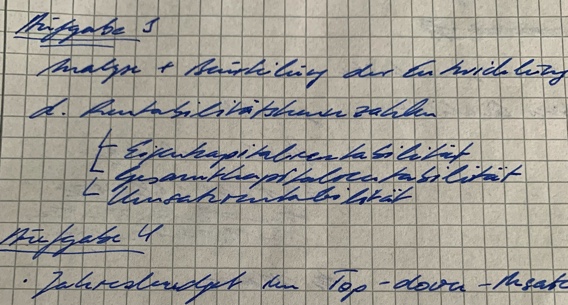 Aufgabe 3
Analyse + Beurteilung der Entwicklung
d. Rentabilitätskennzahlen
Eigenkapitalrentabilität
Gesamtkapitalrentabilität
Umsatzrentabilität
Aufgabe 4
· Jahresbudget im Top-down-Ansatz